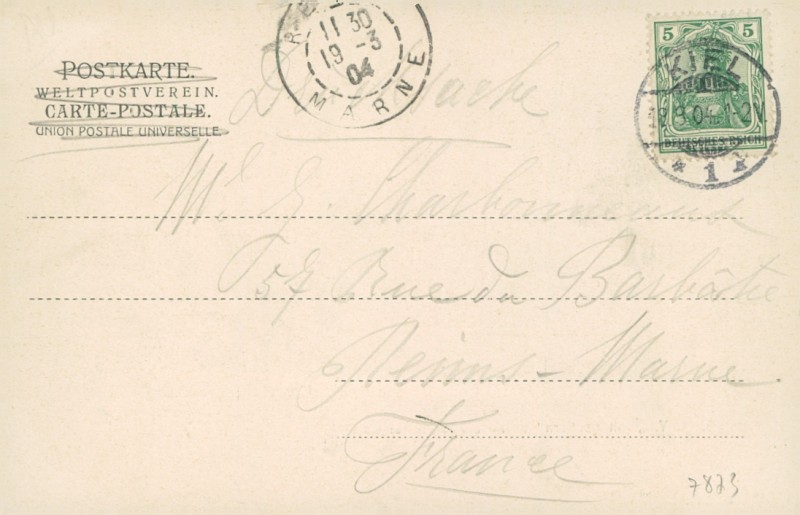 POSTKARTE.
WELTPOSTVEREIN.
CARTE-POSTALE.
UNION POSTALE UNIVERSELLE.
11 30
19 -3
04
MARNE
5 5
KIEL
3.04. 1-2N
DEUTSCHES REICH
* 1 *
E. Charbonneaux
57 Rue du Barbâtre
Reims-Marne
France
7873